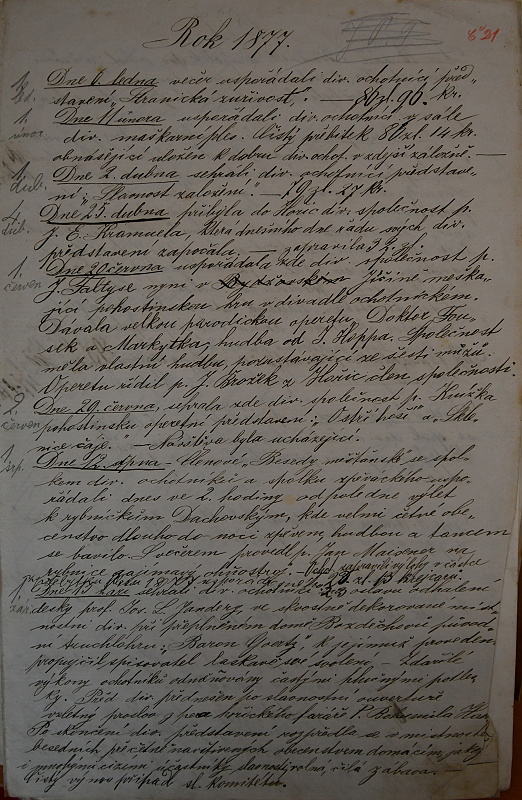 Rok 1877.
21
Dne 6. ledna večer uspořádali div. ochotníci před-
stavení „Kranická zuřivost". — 80 zl. 90. kr.
Dne 11 února uspořádali div. ochotníci v sále
div. maškarní ples. Čistý přebytek 86 zl. 14 kr.
obnášející uložen k dobru div. ochot. v zdejší záložně. —
Dne 2. dubna sehráli div. ochotníci představe-
ní; „Slamost založení." — 19 zl. 27 kr.
Dne 23. dubna přibyla do Hořic div. společnost p.
J. E. Kramuela, která dnešního dne řadu svých div.
představení započala. —
Dne 20 června uspořádala zde div. společnost p.
J. Faltyse nyní v Jičíně meška-
jící pohostinskou hru v divadle ochotnickém.
Dávala velkou parodickou operetu, Doktor Fou-
sek a Markytka, hudba od J. Hoppa. Společnost
měla vlastní hudbu, pozůstávající ze šesti mužů.
Operetu řídil p. J. Brožek z Hořic člen společnosti.
Dne 29. června, sehrála zde div. společnost p. Knížka
pohostinsku operetní představení; „Ostří hoši" a „Skle-
nice čaje." — Návštěva byla ucházející.
Dne 12. srpna — Členové „Besedy měšťanské se spol-
kem div. ochotníků a spolku zpěváckého uspo-
řádali dnes ve 2. hodiny odpoledne výlet
k rybníčkům Dachovským, kde velmi četné obe-
censtvo dlouho do noci zpěvem hudbou a tancem
se bavilo. S večerem provedl p. Jan Maixner na
rybnice zajímavý ohňostroj. —
Dne 15 září sehráli div. ochotníci oslavu odhalení
desky prof. Jos. L. Jandery, ve skvostně dekorované míst-
nosti div. při přeplněném domě Rozdechově původ-
ní truchlohru; „Baron Goertz", k jejímuž provedení
propůjčil spisovatel laskavě své svolení, — Zdařilé
výkony ochotníků odměňovány častými hlučnými potles-
ky. Před div. přednešen po slavnostní ouvertuře
vzletný proslov z pera hořického faráře P. Bohumila
Po skončení div. představení rozpředla se v místnostech
besedních přečetně navštívených obecenstvem domácím, jakož
i mnohými cizími účastníky slavnosti volná, čilá zábava. —
Čistý výnos připadl sl. komitétu.
1.
led.
1.
únor
1.
dub.
1.
dub.
1.
červen
1.
29.
červen
1.
srp.
1.
září